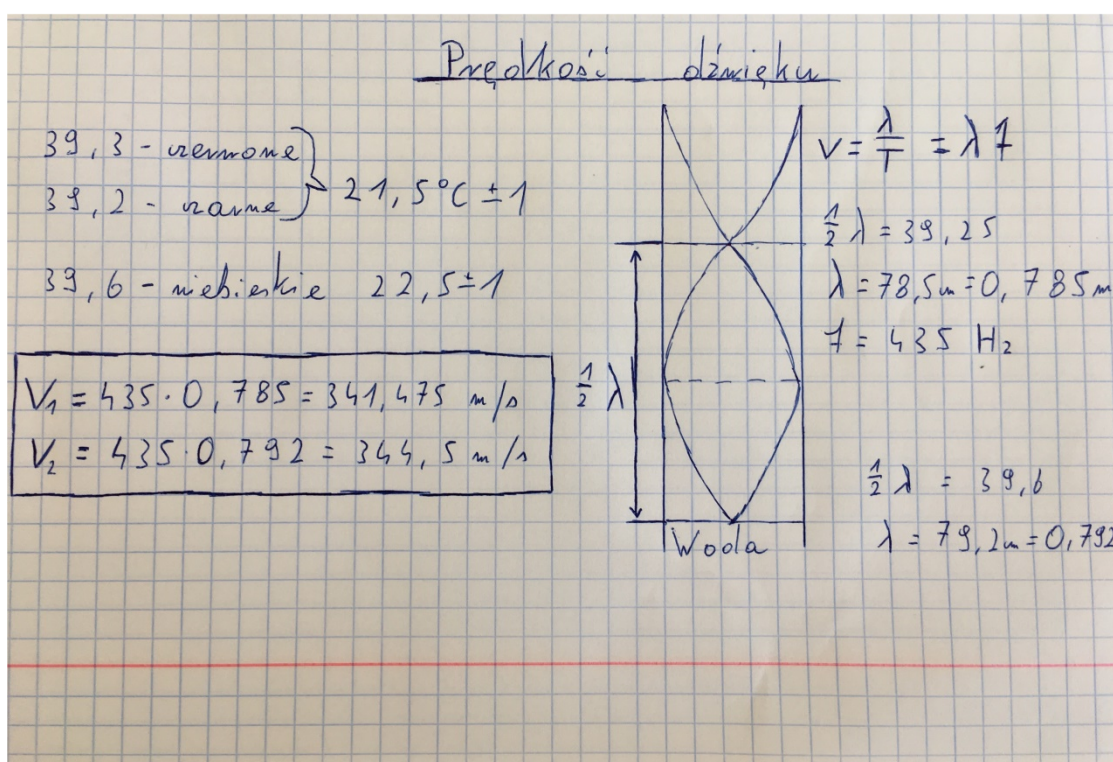 Prędkość dźwięku
39,3 - czerwone
39,2 - czarne
21,5°C ± 1
39,6 - niebieskie 22,5±1
V₁ = 435·0,785 = 341,475 m/s
V₂ = 435·0,792 = 344,5 m/s
½ λ
Woda
v = λ/T = λf
½ λ = 39,25
λ = 78,5cm = 0,785m
f = 435 Hz
½ λ = 39,6
λ = 79,2cm = 0,792